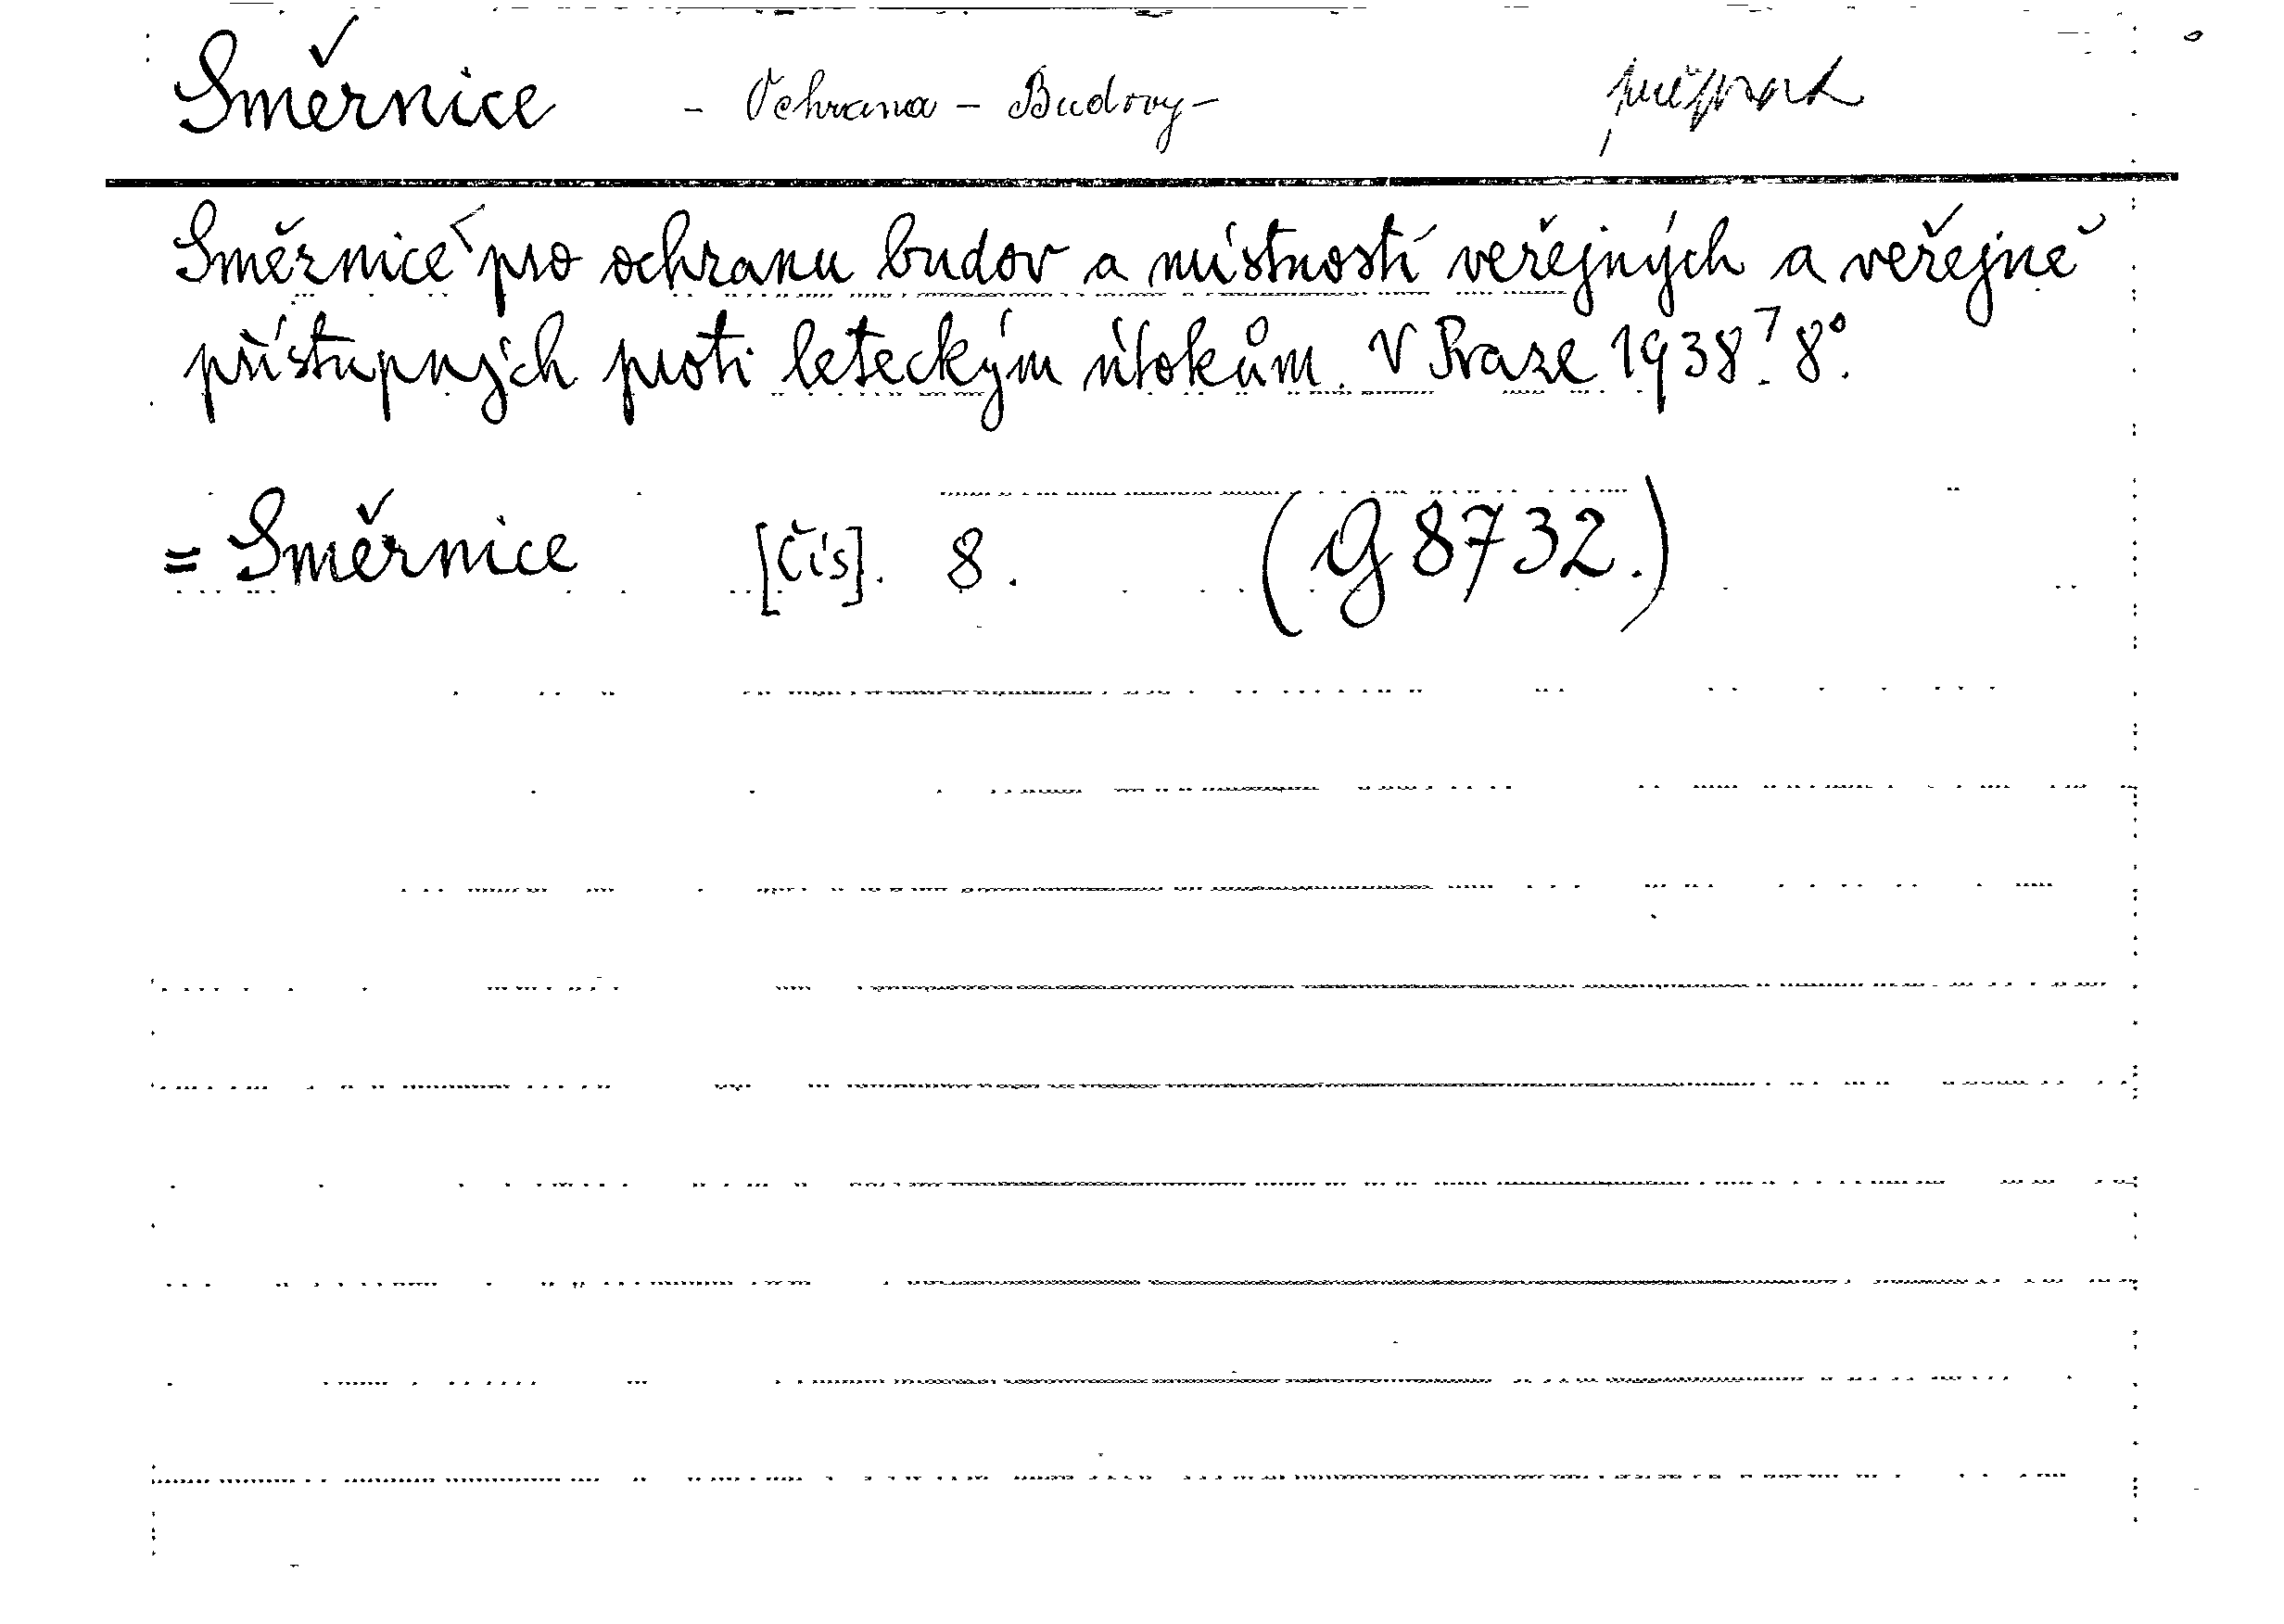 Směrnice - Ochrana - Budovy -
Směrnice pro ochranu budov a místností veřejných a veřejně
přístupných proti leteckým útokům. V Praze 1938. 8°.
= Směrnice [čís]. 8. (G 8732.)